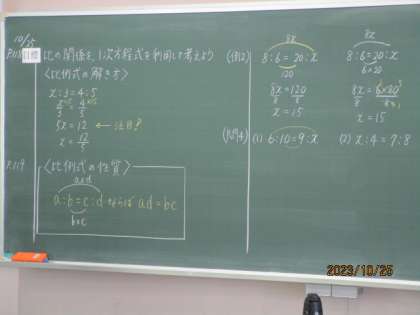 10/25
P.118 目標 比の関係を、1次方程式を利用して考えよう
〈比例式の解き方〉
x:3=4:5
x/3 = 4/5
5x=12 ← 注目!
x = 12/5
P.119 〈比例式の性質〉
a×d
a:b=c:d ならば ad=bc
b×c
(例2)
8x
8:6=20:x
120
8x=120
8 8
x=15
8x
8:6=20:x
6×20
8x = 6×20
x=15
(問4) (1) 6:10=9:x (2) x:4=7:8
2023/10/25